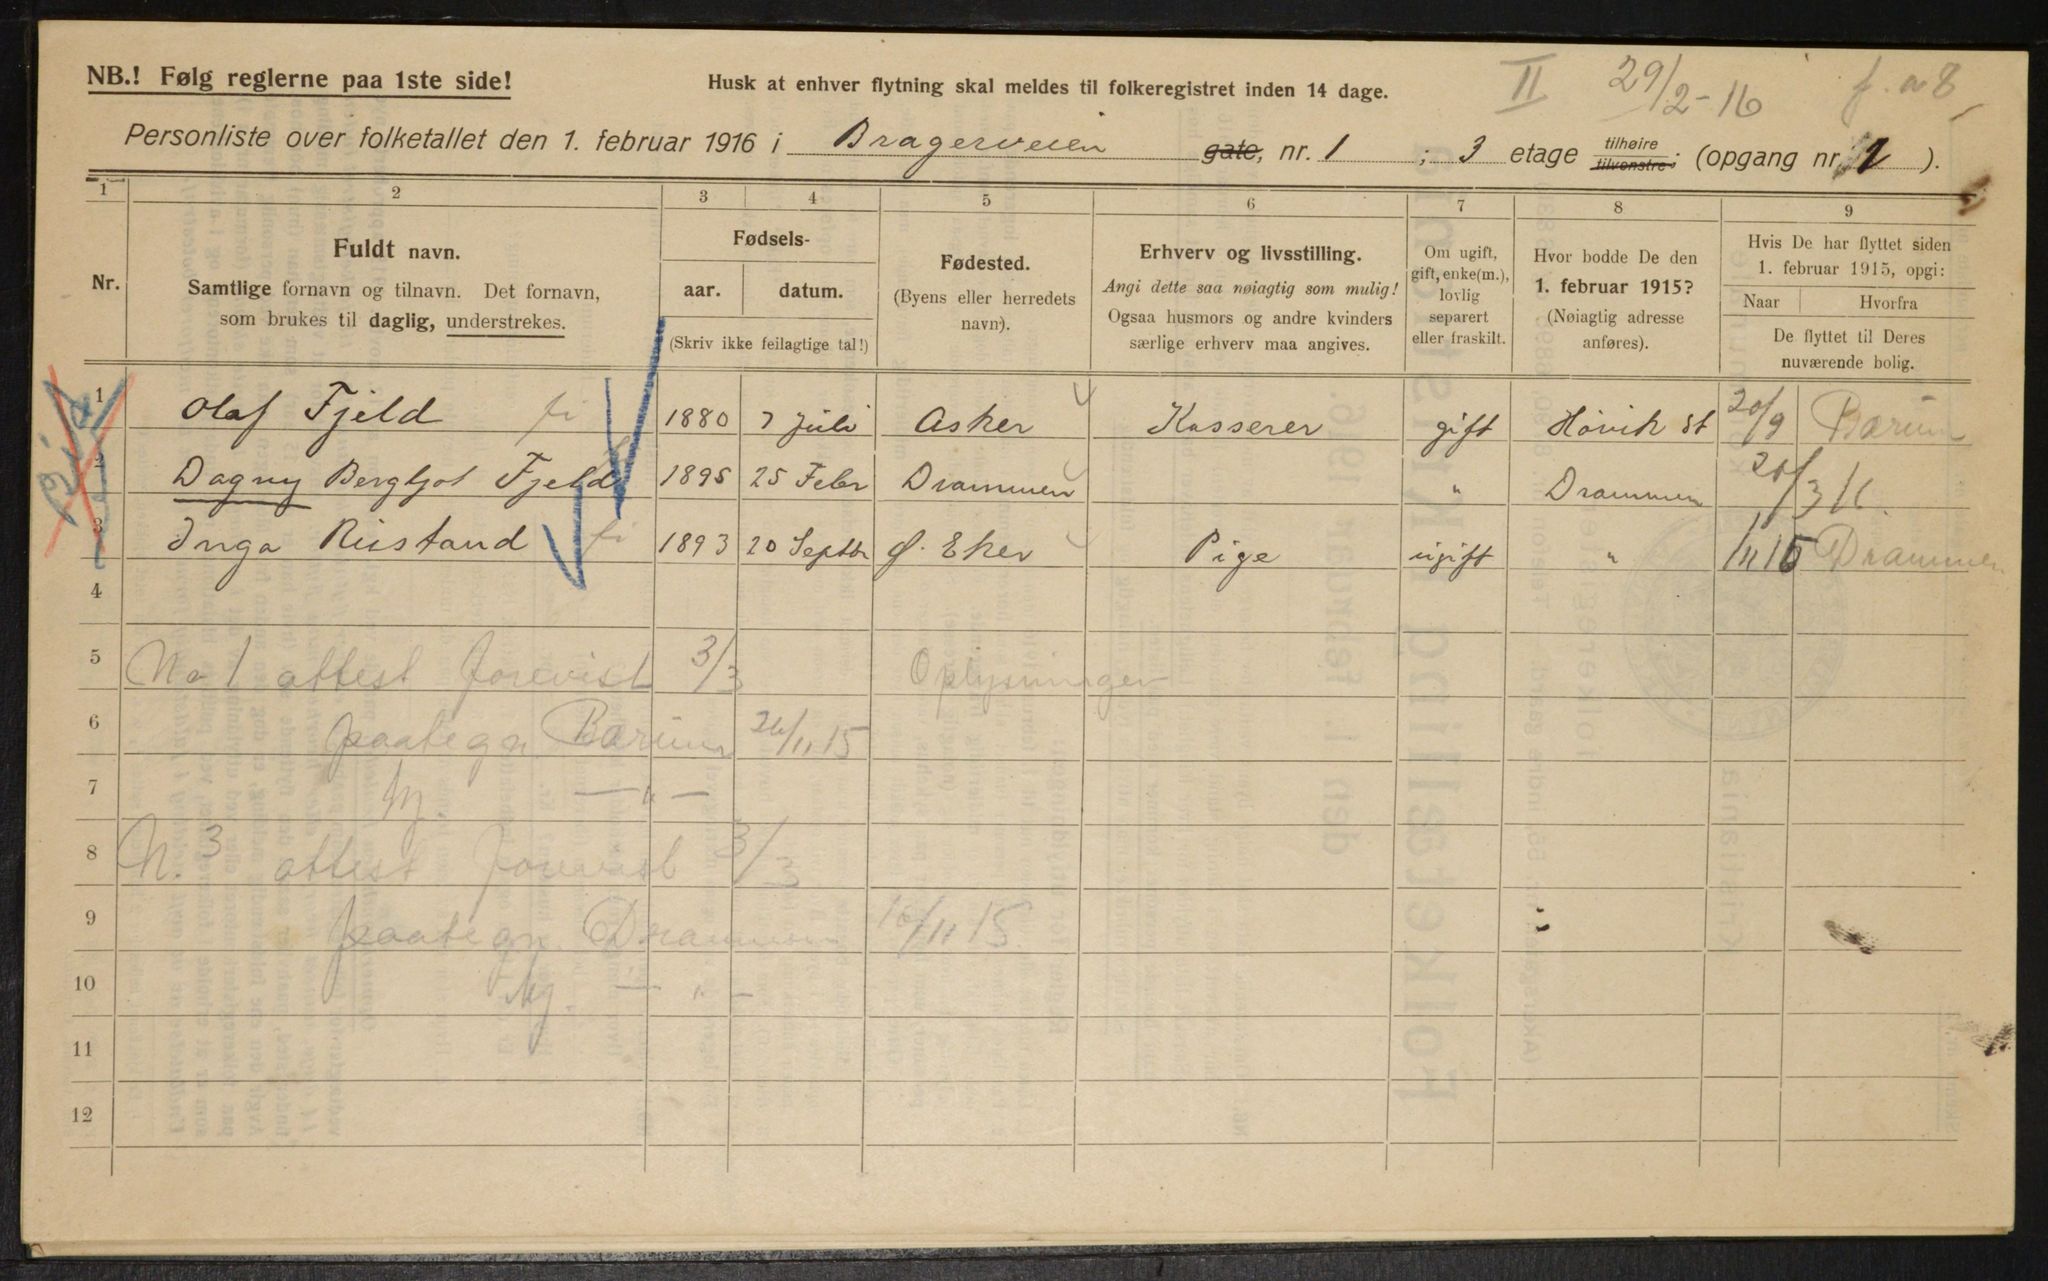 NB.! Følg reglerne paa 1ste side!
Husk at enhver flytning skal meldes til folkeregistret inden 14 dage.
II 29/2-16
Personliste over folketallet den 1. februar 1916 i Bragerveien gate, nr. 1 ; 3 etage tilhøire tilvenstre; (opgang nr. 2 ).
1 2 3 4 5 6 7 8 9
Nr.
Fuldt navn.
Samtlige fornavn og tilnavn. Det fornavn,
som brukes til daglig, understrekes.
Fødsels-
aar. datum.
(Skriv ikke feilagtige tal!)
Fødested.
(Byens eller herredets
navn).
Erhverv og livsstilling.
Angi dette saa nøiagtig som mulig!
Ogsaa husmors og andre kvinders
særlige erhverv maa angives.
Om ugift,
gift, enke(m.),
lovlig
separert
eller fraskilt.
Hvor bodde De den
1. februar 1915?
(Nøiagtig adresse
anføres).
Hvis De har flyttet siden
1. februar 1915, opgi:
Naar Hvorfra
De flyttet til Deres
nuværende bolig.
1 Olaf Fjeld fi 1880 7 Juli Asker Kasserer gift Høvik st 20/9 Bærum
2 Dagny Bergljot Fjeld 1895 25 Febr Drammen " Drammen 20/3 16.
3 Inga Riistand fi 1893 20 Septbr Ø. Eker Pige ugift " 1/11 15 Drammen
4
5 No 1 attest forevist 3/3 Oplysninger
6 paategn Bærum 26/11 15
7 — " —
8 N. 3 attest forevist 3/3
9 paategn Drammen 16/11 15
10 — " —
11
12